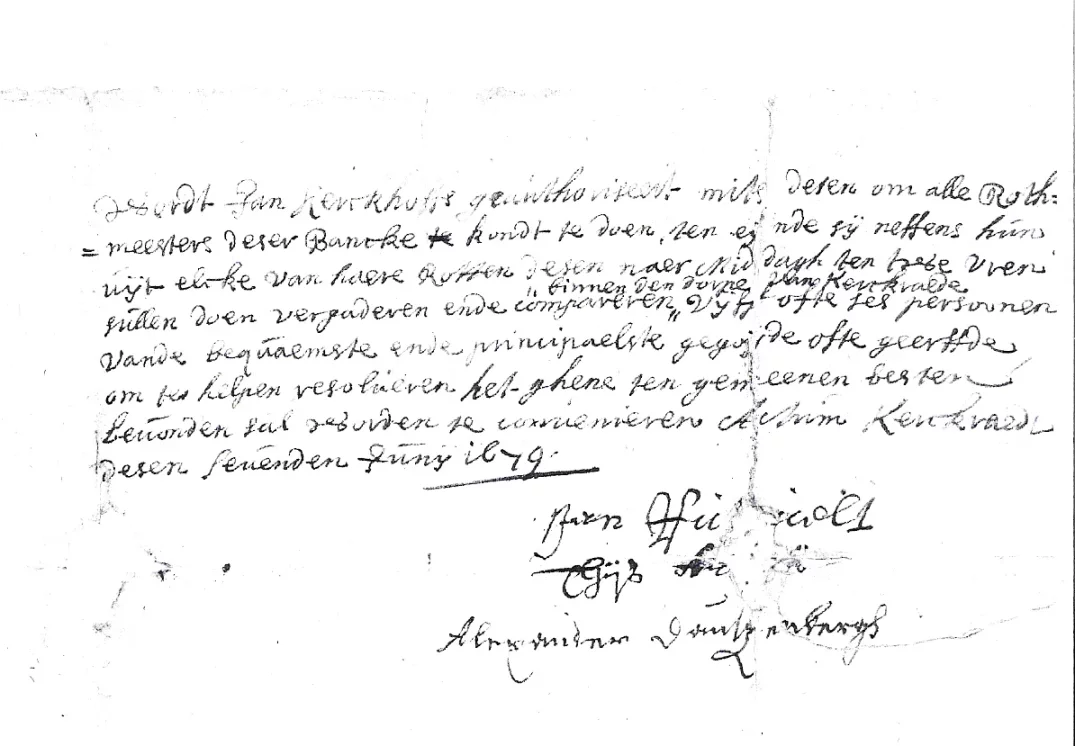 Wordt Jan Kerckhoffs geauthoriseert mits desen om alle Roth=
=meesters deser Bancke te kondt te doen, ten eijnde sij neffens hun
uijt elcke van haere Rotten desen naer Middagh ten twee Uren
„ binnen den dorpe van Kerckraede
sullen doen vergaderen ende compareren „ vijf ofte ses persoonen
vande bequaemste ende principaelste gegoijde ofte geerffde
om te helpen resolueren het ghene ten gemeenen besten
beuonden sal worden te conuenieren Actum Kerckraede
desen seuenden Junij 1679.
Jan
Thijs
Alexander Dautzenbergh